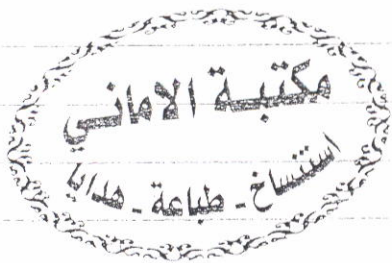 مكتبة الاماني
استنساخ - طباعة - هدايا